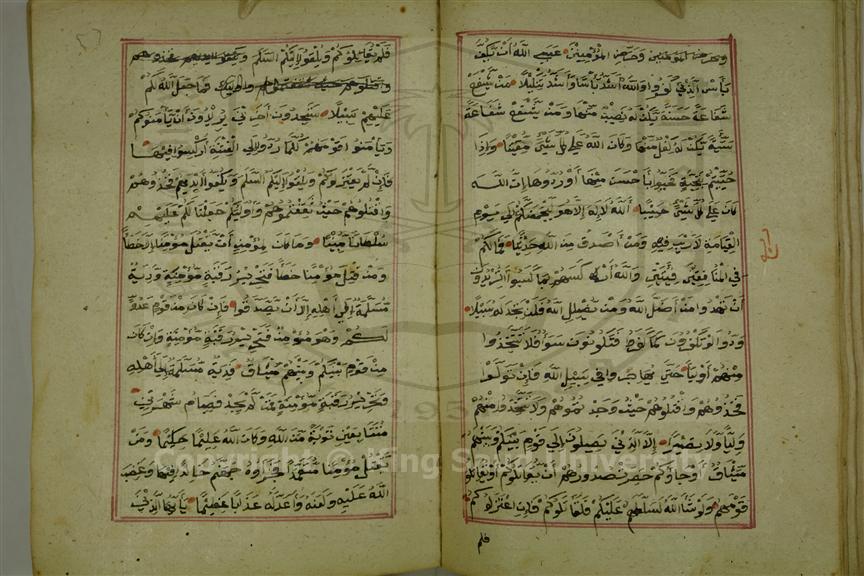 وحرض المؤمنين وحرض المؤمنين عسى الله أن يكف
بأس الذين كفروا والله أشد بأسا وأشد تنكيلا من يشفع
شفاعة حسنة يكن له نصيب منها ومن يشفع شفاعة
سيئة يكن له كفل منها وكان الله على كل شيء مقيتا وإذا
حييتم بتحية فحيوا بأحسن منها أو ردوها إن الله
كان على كل شيء حسيبا الله لا إله إلا هو ليجمعنكم إلى يوم
القيامة لا ريب فيه ومن أصدق من الله حديثا فما لكم
في المنافقين فئتين والله أركسهم بما كسبوا أتريدون
أن تهدوا من أضل الله ومن يضلل الله فلن تجد له سبيلا
ودوا لو تكفرون كما كفروا فتكونون سواء فلا تتخذوا
منهم أولياء حتى يهاجروا في سبيل الله فإن تولوا
فخذوهم واقتلوهم حيث وجدتموهم ولا تتخذوا منهم
وليا ولا نصيرا إلا الذين يصلون إلى قوم بينكم وبينهم
ميثاق أو جاؤكم حصرت صدورهم أن يقاتلوكم أو يقاتلوا
قومهم ولو شاء الله لسلطهم عليكم فلقاتلوكم فإن اعتزلوكم
فلم
فلم يقاتلوكم ويلقوا إليكم السلم ويكفوا أيديهم فخذوهم
واقتلوهم حيث ثقفتموهم وأولئك فما جعل الله لكم
عليهم سبيلا ستجدون آخرين يريدون أن يأمنوكم
ويأمنوا قومهم كلما ردوا إلى الفتنة أركسوا فيها
فإن لم يعتزلوكم ويلقوا إليكم السلم ويكفوا أيديهم فخذوهم
واقتلوهم حيث ثقفتموهم وأولئكم جعلنا لكم عليهم
سلطانا مبينا وما كان لمؤمن أن يقتل مؤمنا إلا خطأ
ومن قتل مؤمنا خطأ فتحرير رقبة مؤمنة ودية
مسلمة إلى أهله إلا أن يصدقوا فإن كان من قوم عدو
لكم وهو مؤمن فتحرير رقبة مؤمنة وإن كان
من قوم بينكم وبينهم ميثاق فدية مسلمة إلى أهله
وتحرير رقبة مؤمنة فمن لم يجد فصيام شهرين
متتابعين توبة من الله وكان الله عليما حكيما ومن
يقتل مؤمنا متعمدا فجزاؤه جهنم خالدا فيها وغضب
الله عليه ولعنه وأعد له عذابا عظيما يا أيها الذين
1957
Copyright © King Saud University